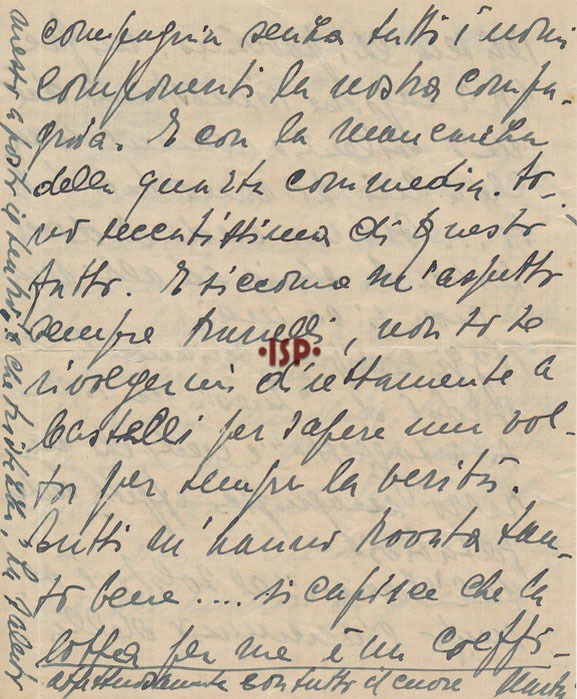 compagnia senza tutti i nomi
componenti la nostra compa-
gnia. E con la mancanza
della quarta commedia. So-
no seccatissima di questo
fatto. E siccome m'aspetto
sempre tranelli, non so se
rivolgermi direttamente a
Castelli per sapere una vol-
ta per sempre la verità.
Tutti m'hanno trovata tan-
to bene .... si capisce che la
lotta per me è un coeffi-
affettuosamente con tutto il cuore
ISP